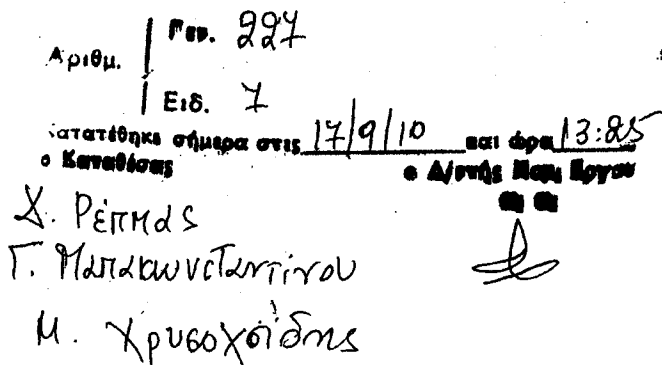 Αριθμ.
Γεν. 227
Ειδ. 7
Κατατέθηκε σήμερα στις 17/9/10 και ώρα 13:25
ο Καταθέσας
ο Δ/ντής Νομ. Έργου
Δ. Ρέππας
Γ. Παπακωνσταντίνου
Μ. Χρυσοχοΐδης